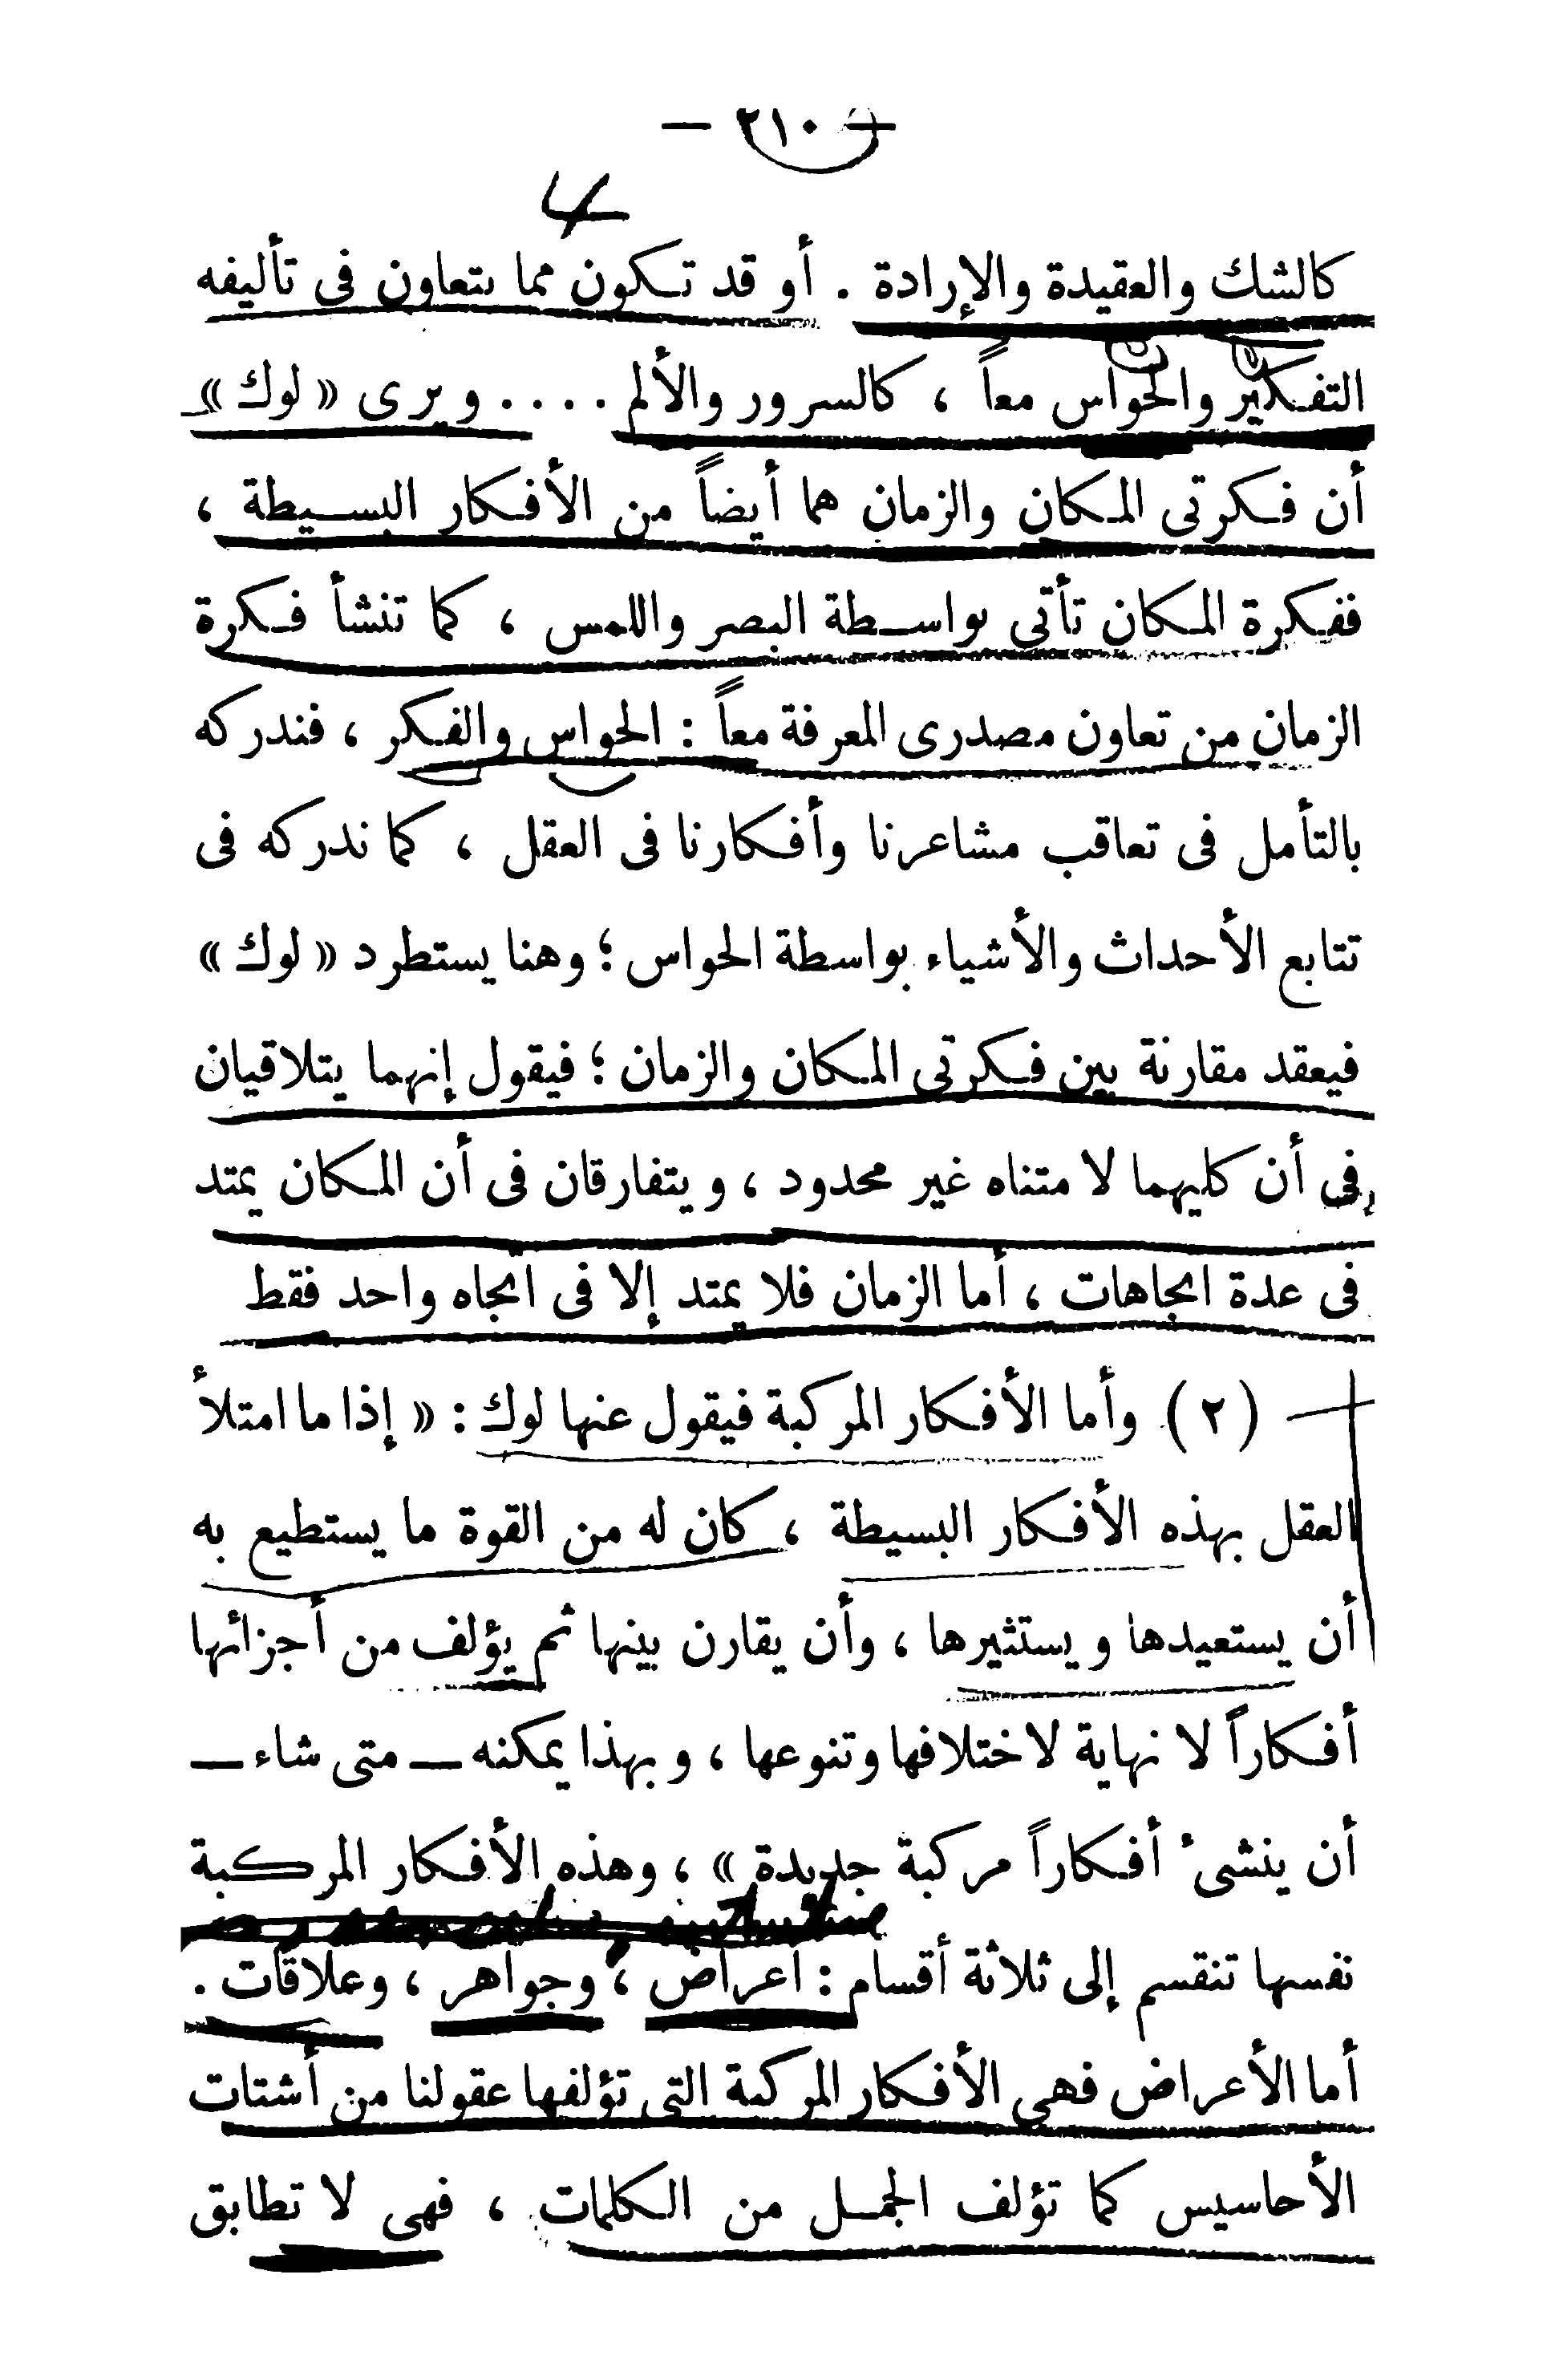 — ٢١٠ —
كالشك والعقيدة والإرادة . أو قد تكون مما يتعاون فى تأليفه
التفكير والحواس معاً ، كالسرور والألم .... ويرى « لوك »
أن فكرتى المكان والزمان هما أيضاً من الأفكار البسيطة ،
ففكرة المكان تأتى بواسطة البصر واللمس ، كما تنشأ فكرة
الزمان من تعاون مصدرى المعرفة معاً : الحواس والفكر ، فندركه
بالتأمل فى تعاقب مشاعرنا وأفكارنا فى العقل ، كما ندركه فى
تتابع الأحداث والأشياء بواسطة الحواس ؛ وهنا يستطرد « لوك »
فيعقد مقارنة بين فكرتى المكان والزمان ؛ فيقول إنهما يتلاقيان
فى أن كليهما لا متناه غير محدود ، ويتفارقان فى أن المكان يمتد
فى عدة اتجاهات ، أما الزمان فلا يمتد إلا فى اتجاه واحد فقط
( ٢ ) وأما الأفكار المركبة فيقول عنها لوك : « إذا ما امتلأ
العقل بهذه الأفكار البسيطة ، كان له من القوة ما يستطيع به
أن يستعيدها ويستثيرها ، وأن يقارن بينها ثم يؤلف من أجزائها
أفكاراً لا نهاية لاختلافها وتنوعها ، وبهذا يمكنه — متى شاء —
أن ينشىء أفكاراً مركبة جديدة » ، وهذه الأفكار المركبة
نفسها تنقسم إلى ثلاثة أقسام : أعراض ، وجواهر ، وعلاقات .
أما الأعراض فهى الأفكار المركبة التى تؤلفها عقولنا من أشتات
الأحاسيس كما تؤلف الجمل من الكلمات ، فهى لا تطابق